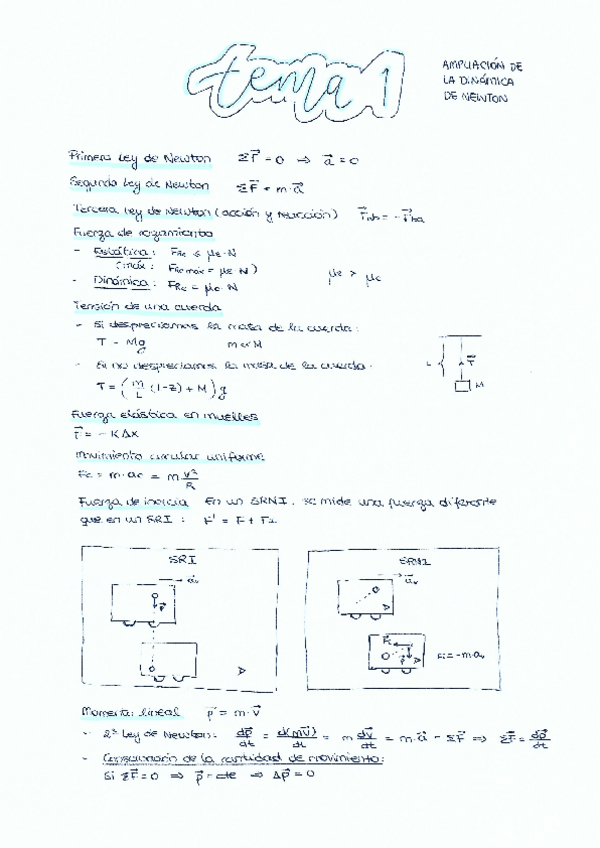 tema 1
AMPLIACIÓN DE
LA DINÁMICA
DE NEWTON
Primera Ley de Newton ΣF⃗ = 0 ⇒ a⃗ = 0
Segunda Ley de Newton ΣF⃗ = m·a⃗
Tercera Ley de Newton (acción y reacción) F⃗ab = -F⃗ba
Fuerza de rozamiento
- Estática: FRe ≤ μe·N
(máx: FRe máx = μe·N)
μe > μc
- Dinámica: FRc = μc·N
Tensión de una cuerda
- Si despreciamos la masa de la cuerda:
T = Mg m≪M
- Si no despreciamos la masa de la cuerda:
T = (m/L (l-z) + M) g
L T⃗ M
Fuerza elástica en muelles
F⃗ = - K Δx
Movimiento circular uniforme
Fc = m·ac = m v²/R
Fuerza de inercia En un SRNI, se mide una fuerza diferente
que en un SRI: F' = F + Fi
SRI
SRNI
Fi = -m·a₀
Momento lineal p⃗ = m·v⃗
- 2ª Ley de Newton: dp⃗/dt = d(mv⃗)/dt = m dv⃗/dt = m·a⃗ = ΣF⃗ ⇒ ΣF⃗ = dp⃗/dt
- Conservación de la cantidad de movimiento:
Si ΣF⃗ = 0 ⇒ p⃗ = cte ⇒ Δp⃗ = 0